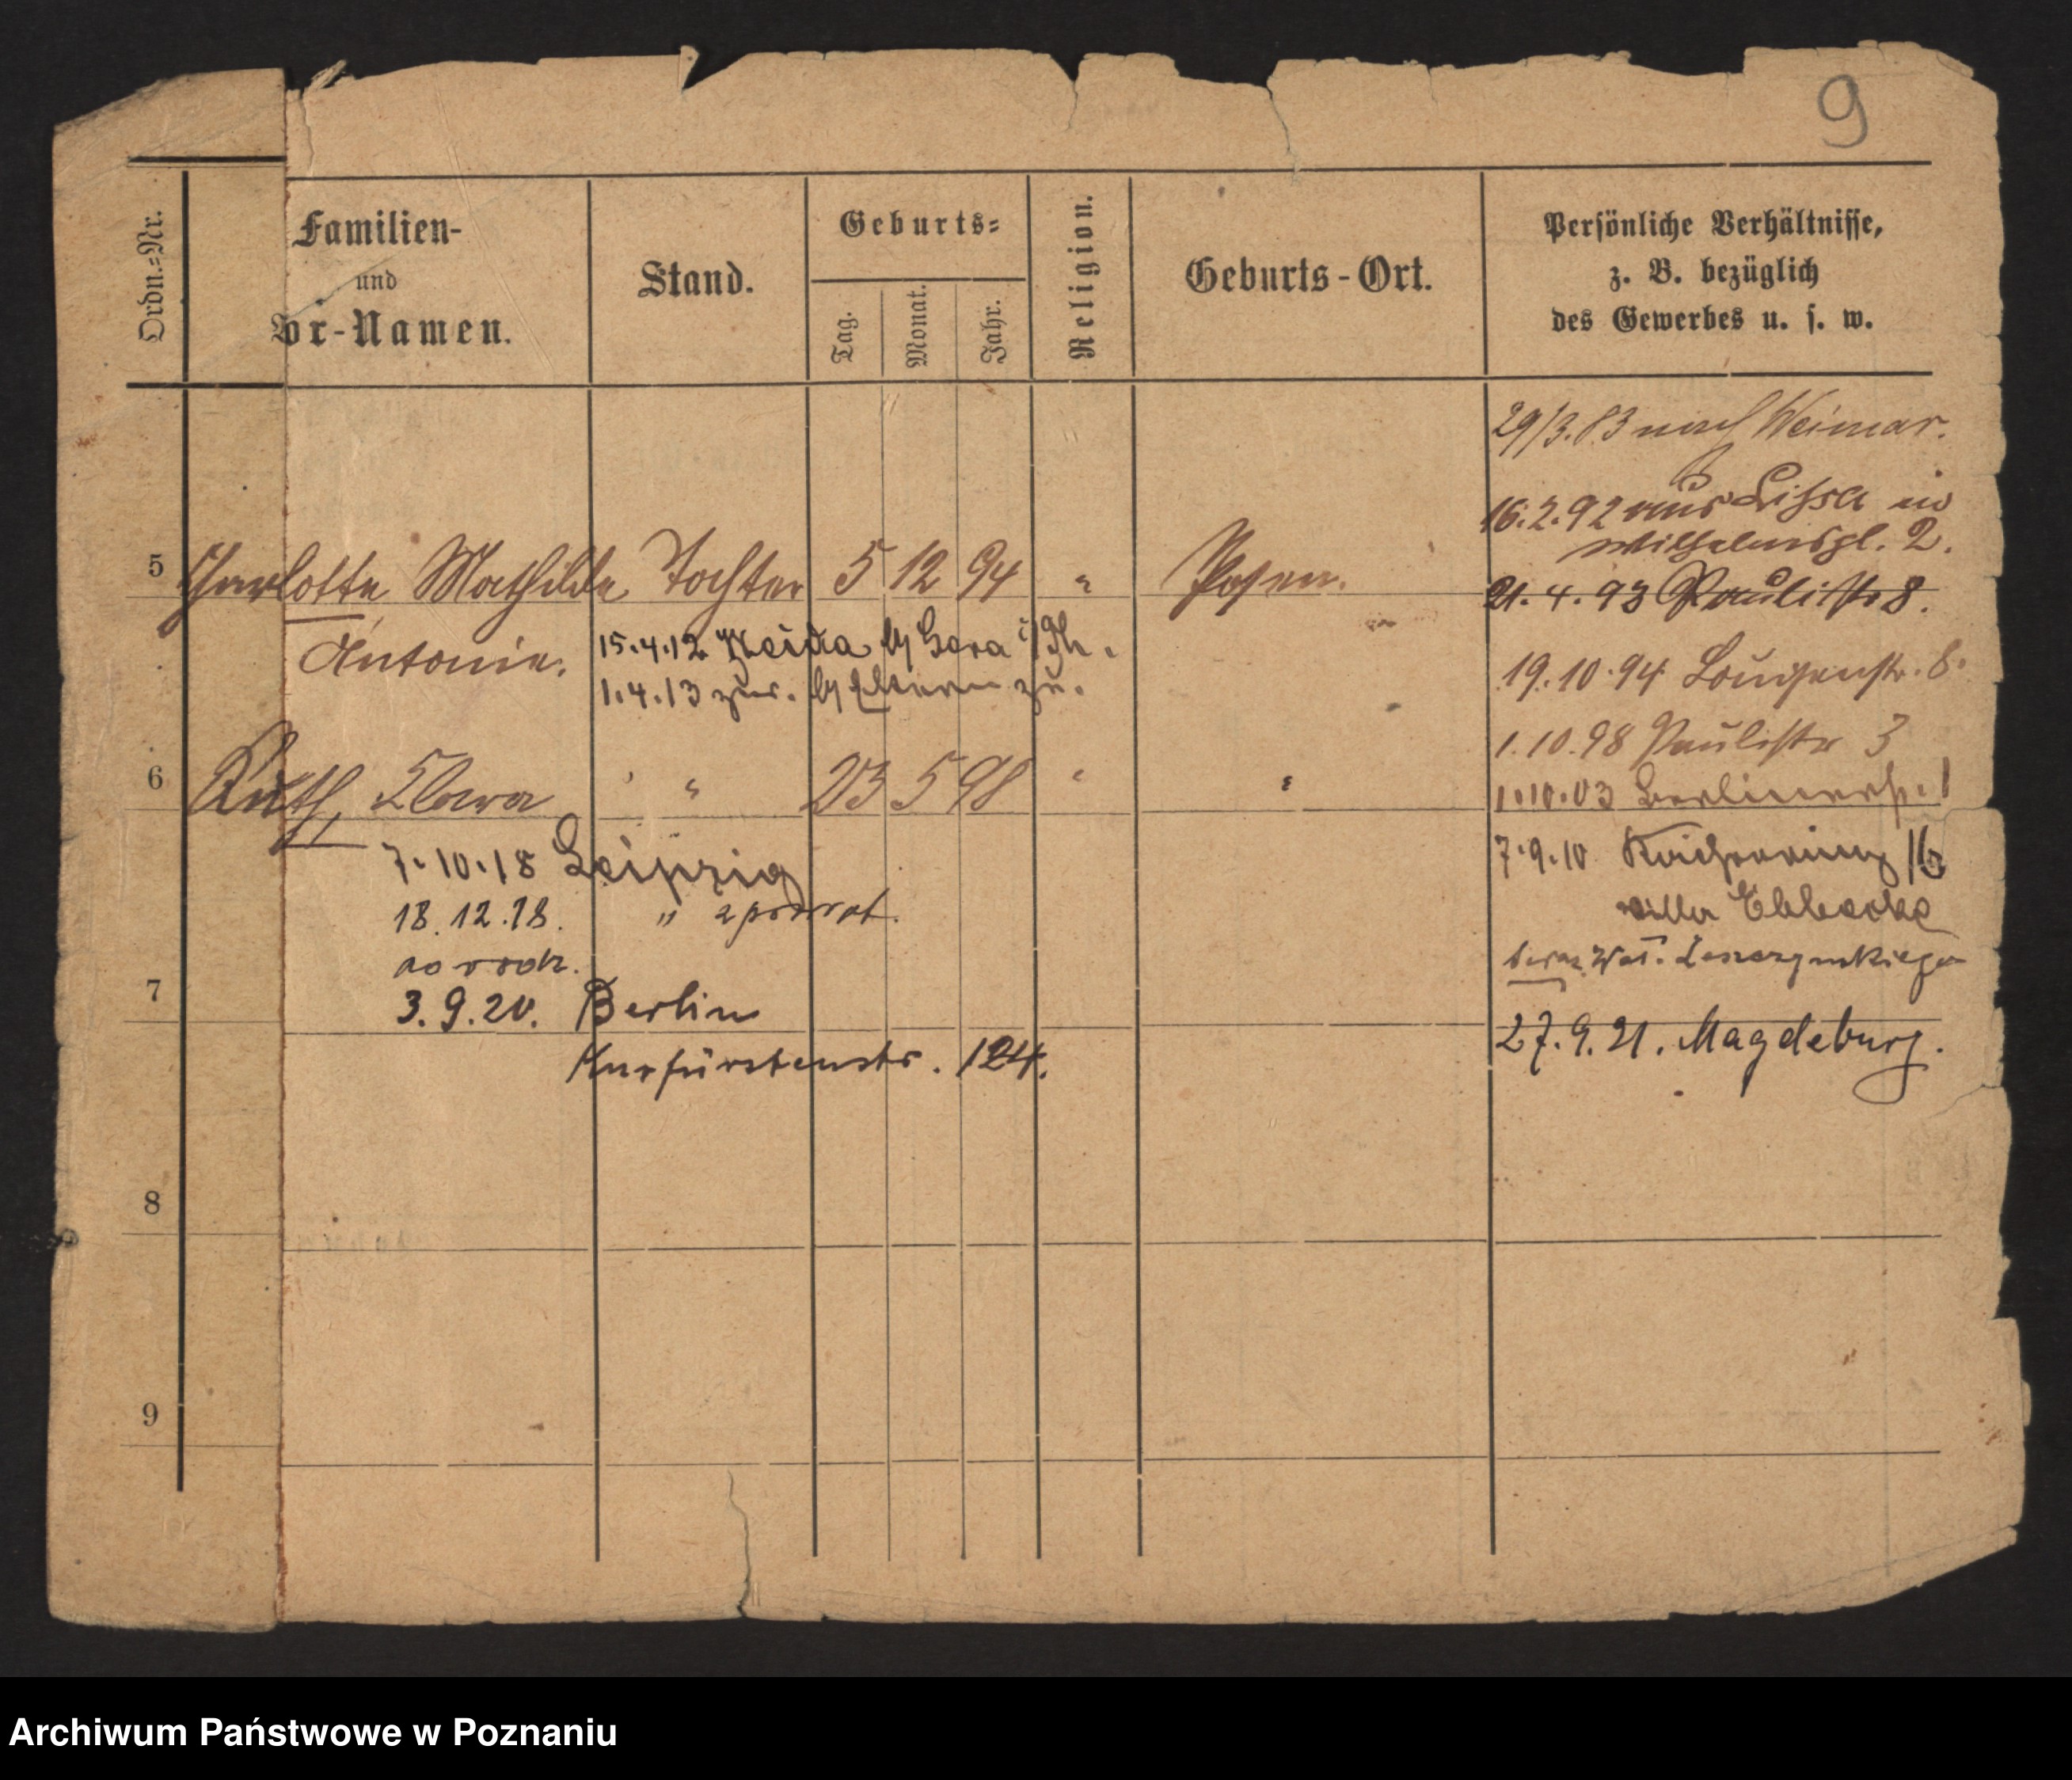 9
Ordn.-Nr.
Familien-
und
Vor-Namen.
Stand.
Geburts-
Tag.
Monat.
Jahr.
Religion.
Geburts-Ort.
Persönliche Verhältnisse,
z. B. bezüglich
des Gewerbes u. s. w.
29/3.83 nach Weimar.
16.2.92 aus Lissa in
Wilhelmspl. 2.
5 Charlotte Mathilde Tochter 5 12 94 " Posen.
21.4.93 Paulistr 8.
Antonie.
15.4.12 Weida b/ Gera i/Th.
1.4.13 zur. b/ Eltern zu.
19.10.94 Louisenstr. 8.
1.10.98 Paulistr 3
6 Ruth, Clara " 23 5 98 " "
1.10.03 Berlinerstr. 1
7.10.18 Leipzig
18.12.18. " z powrot.
do rodz.
7
3.9.20. Berlin
Kurfürstenstr. 124.
7.9.10
villa
27.9.21. Magdeburg.
8
9
Archiwum Państwowe w Poznaniu